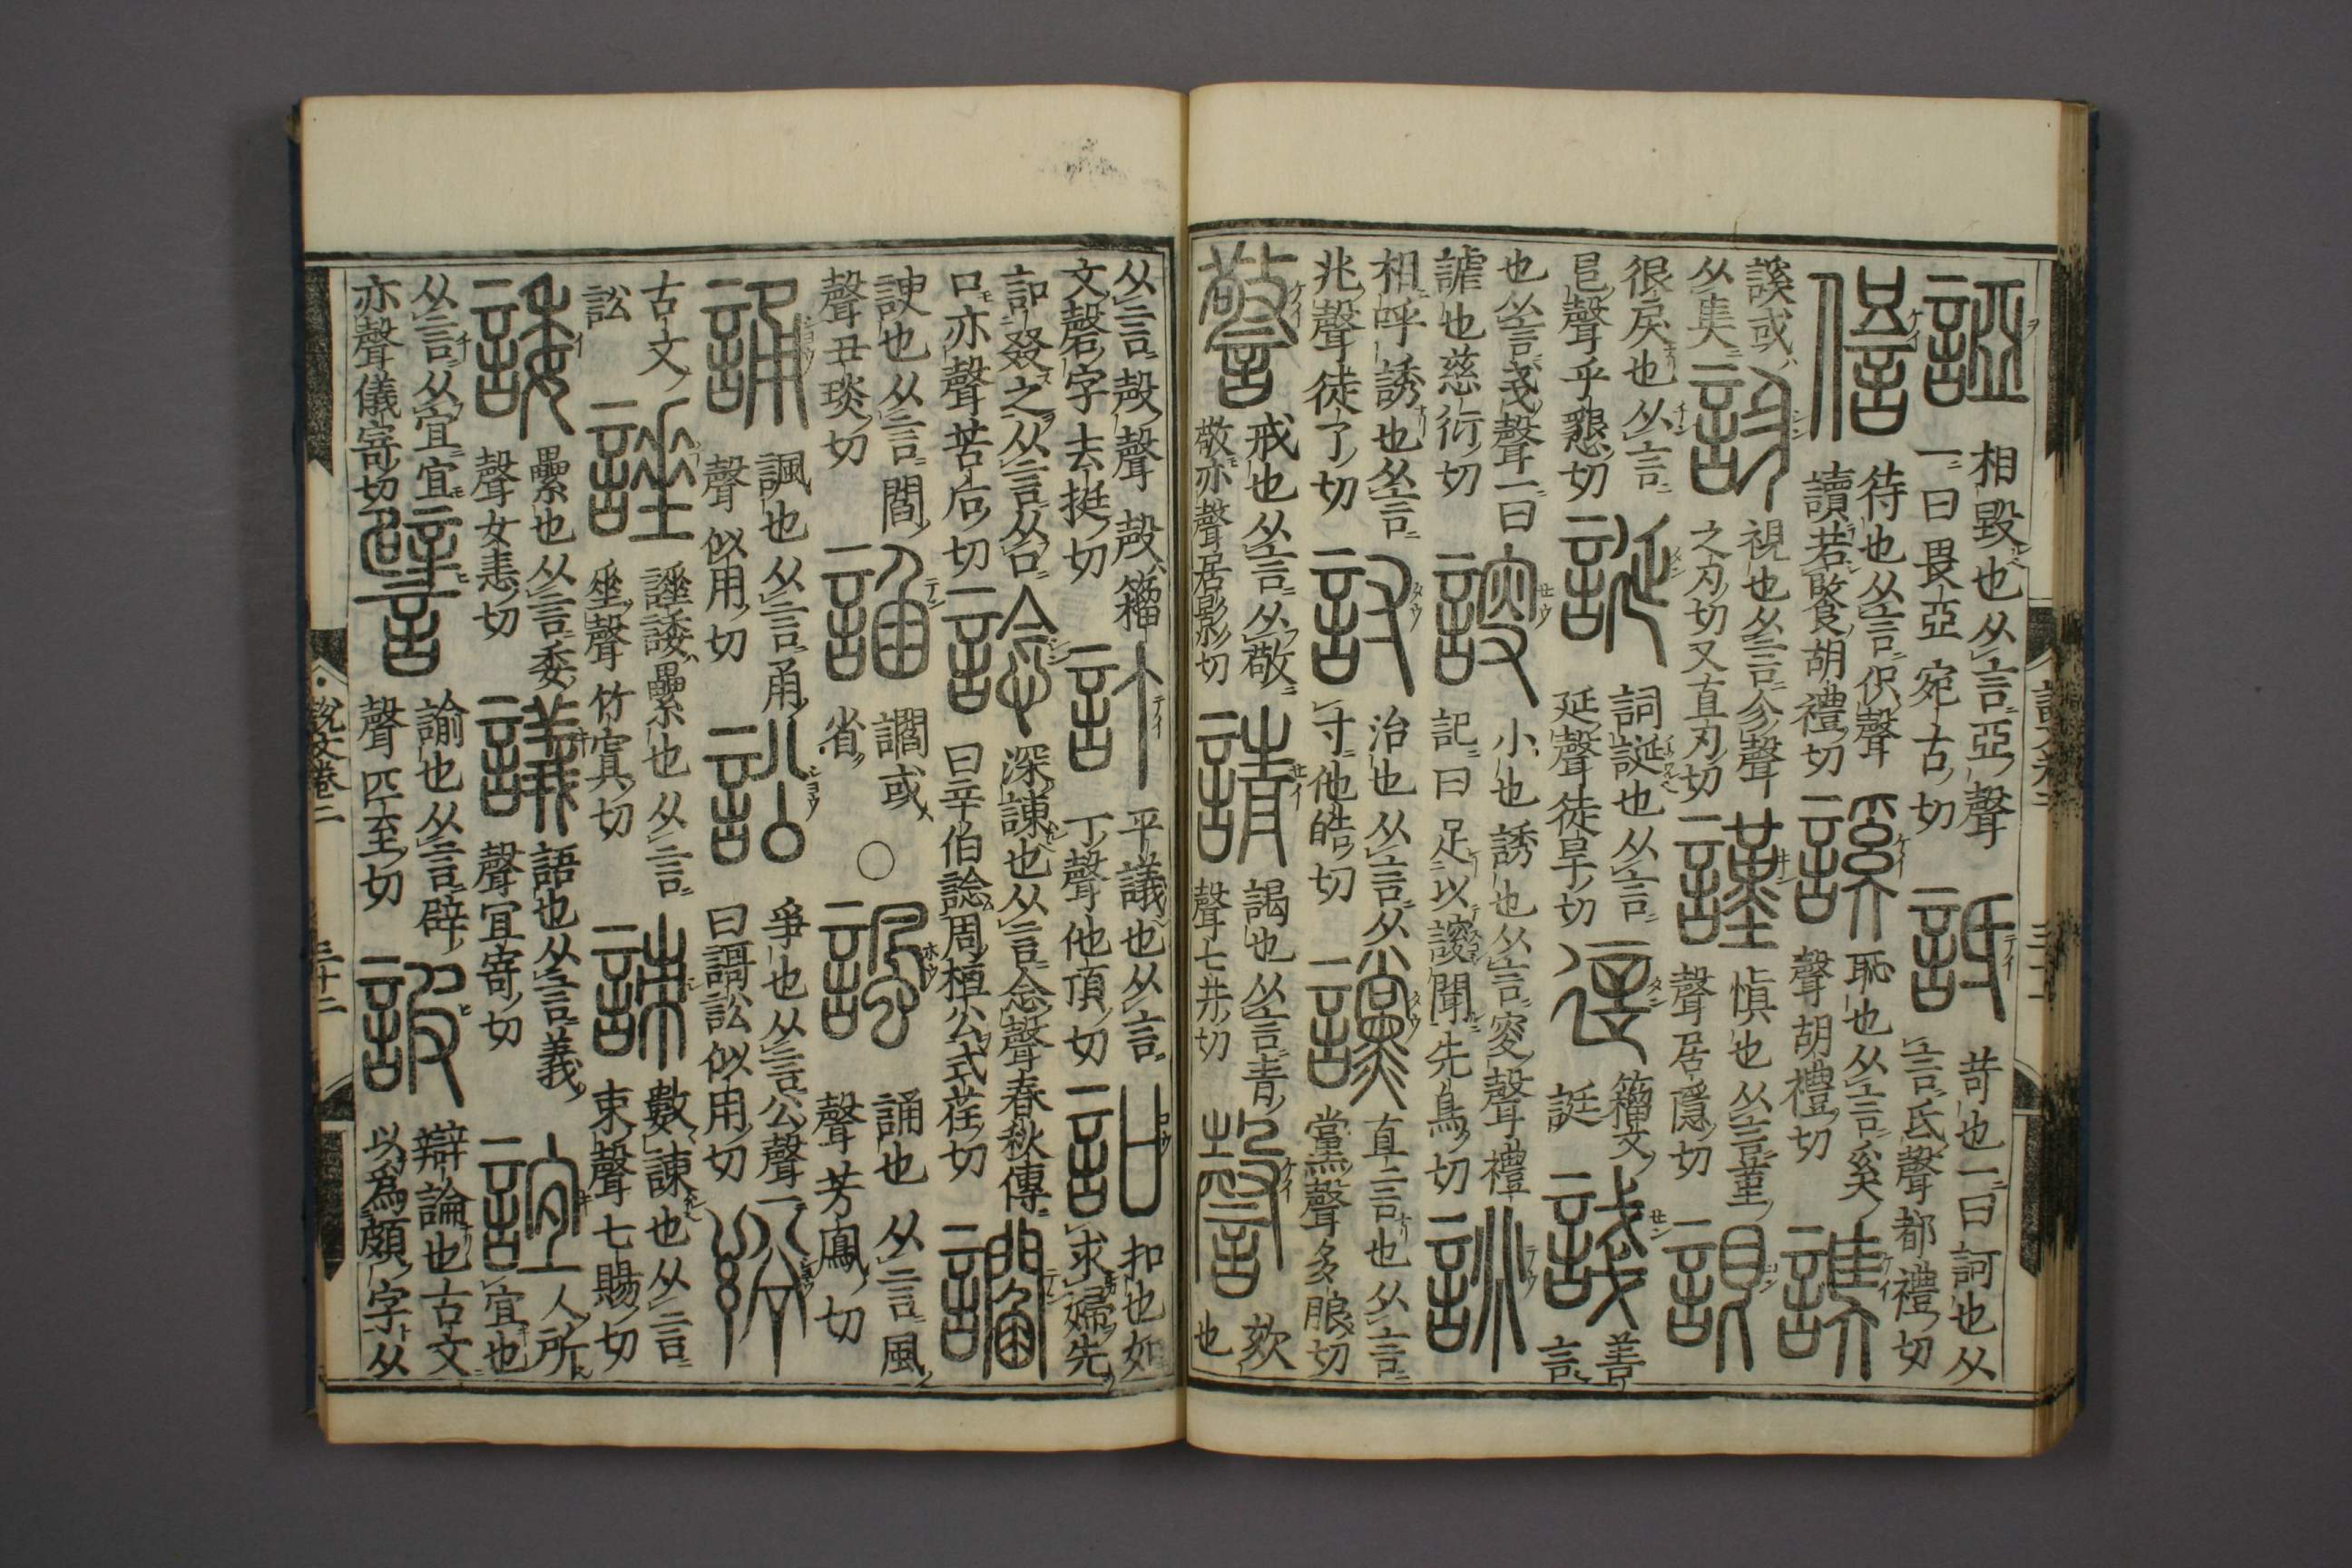 䛩
相毀也从言亞聲
一曰畏亞宛古切
詆
苛也一曰訶也从
言氐聲都禮切
待也从言伿聲
讀若 胡禮切
謑
恥也从言奚聲
聲胡禮切
謑或
从
診
視也从言㐱聲
之刃切又直刃切
謹
愼也从言堇
聲居隱切
詪
很戾也从言
㫐聲乎懇切
誕
詞誕也从言
延聲徒旱切
籒文
誕
諓
善
言
也从言戔聲一曰
謔也慈衍切
謏
小也誘也从言叜聲禮
記曰足以謏聞先鳥切
誂
相呼誘也从言
兆聲徒了切
討
治也从言从
寸他皓切
讜
直言也从言
黨聲多朖切
警
戒也从言从敬
敬亦聲居影切
請
謁也从言青
聲七井切
謦
欬
也
从言殸聲殸籒
文磬字去挺切
訂
平議也从言
丁聲他頂切
扣也如
求婦先
叕之从言从口
口亦聲苦后切
諗
深諫也从言念聲春秋傳
曰辛伯諗周桓公式荏切
讇
諛也从言閻
聲丑琰切
諂
讇或
省
○
諷
誦也从言風
聲芳鳳切
誦
諷也从言甬
聲似用切
訟
爭也从言公聲一
曰謌訟似用切
古文
訟
諈
諈諉纍也从言
聲竹寘切
數諫也从言
朿聲七賜切
諉
纍也从言委
聲女恚切
議
語也从言義
聲宜寄切
誼
人所
宜也
从言从宜宜
亦聲儀寄切
譬
諭也从言辟
聲匹至切
詖
辯論也古文
以爲頗字从
說文卷二
三十二